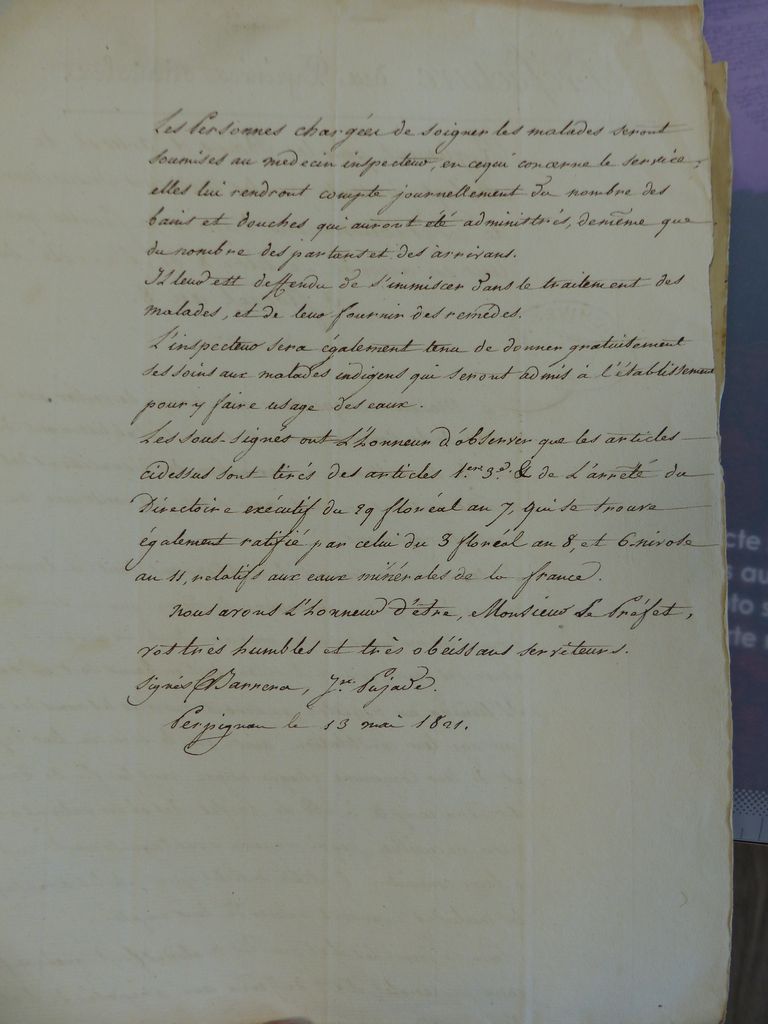 Les Personnes chargées de soigner les malades seront
soumises au medecin inspecteur, en cequi concerne le service,
elles lui rendront compte journellement du nombre des
bains et douches qui auront été administrés, demême que
du nombre des partans et des arrivans.
Il leur est deffendu de s'immiscer dans le traitement des
malades, et de leur fournir des remèdes.
L'inspecteur sera également tenu de donner gratuitement
ses soins aux malades indigens qui seront admis à l'établissement
pour y faire usage des eaux.
Les sous-signés ont L'honneur d'observer que les articles
cidessus sont tirés des articles 1.er 3.e & de L'arrêté du
Directoire exécutif du 29 floréal an 7, qui se trouve
également ratifié par celui du 3 floréal an 8, et 6 nivose
an 11, relatifs aux eaux minérales de la france.
nous avons L'honneur d'être, Monsieur Le Préfet,
vos très humbles et très obéissans serviteurs.
signés Barrera, Pujade.
Perpignan le 13 mai 1821.
cte
s au
oto s
rte